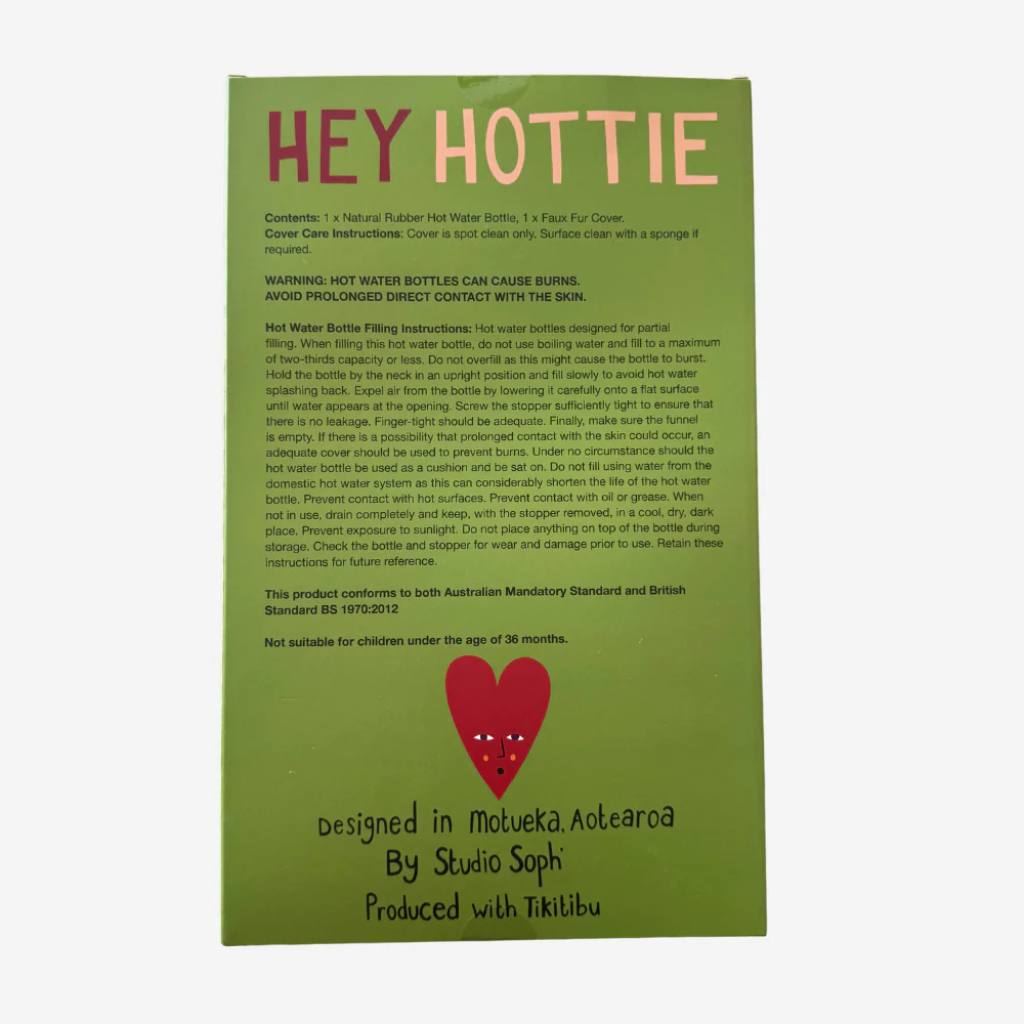 HEY HOTTIE
Contents: 1 x Natural Rubber Hot Water Bottle, 1 x Faux Fur Cover.
Cover Care Instructions: Cover is spot clean only. Surface clean with a sponge if
required.
WARNING: HOT WATER BOTTLES CAN CAUSE BURNS.
AVOID PROLONGED DIRECT CONTACT WITH THE SKIN.
Hot Water Bottle Filling Instructions: Hot water bottles designed for partial
filling. When filling this hot water bottle, do not use boiling water and fill to a maximum
of two-thirds capacity or less. Do not overfill as this might cause the bottle to burst.
Hold the bottle by the neck in an upright position and fill slowly to avoid hot water
splashing back. Expel air from the bottle by lowering it carefully onto a flat surface
until water appears at the opening. Screw the stopper sufficiently tight to ensure that
there is no leakage. Finger-tight should be adequate. Finally, make sure the funnel
is empty. If there is a possibility that prolonged contact with the skin could occur, an
adequate cover should be used to prevent burns. Under no circumstance should the
hot water bottle be used as a cushion and be sat on. Do not fill using water from the
domestic hot water system as this can considerably shorten the life of the hot water
bottle. Prevent contact with hot surfaces. Prevent contact with oil or grease. When
not in use, drain completely and keep, with the stopper removed, in a cool, dry, dark
place. Prevent exposure to sunlight. Do not place anything on top of the bottle during
storage. Check the bottle and stopper for wear and damage prior to use. Retain these
instructions for future reference.
This product conforms to both Australian Mandatory Standard and British
Standard BS 1970:2012
Not suitable for children under the age of 36 months.
Designed in Motueka, Aotearoa
By Studio Soph'
Produced with Tikitibu